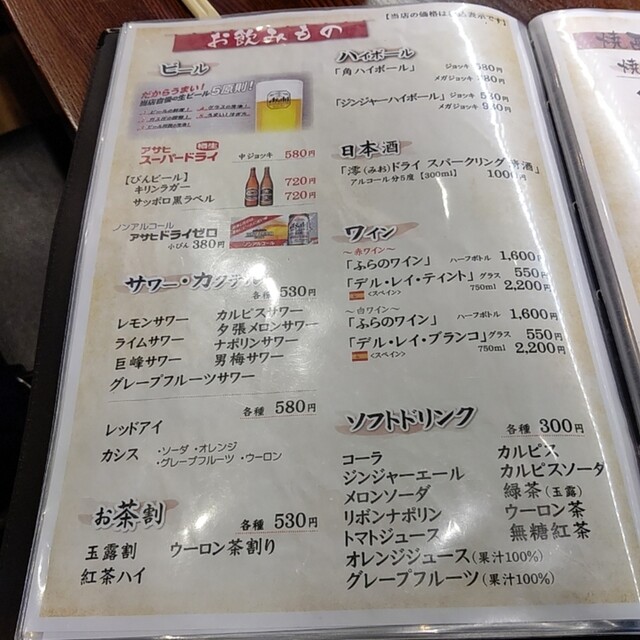 お飲みもの
ビール
だからうまい!
当店自慢の生ビール5原則!
Asahi
アサヒ 樽生
スーパードライ 中ジョッキ 580円
【びんビール】
キリンラガー 720円
サッポロ黒ラベル 720円
ノンアルコール
アサヒドライゼロ
小びん 380円
サワー・カクテル
各種 530円
レモンサワー カルピスサワー
ライムサワー 夕張メロンサワー
巨峰サワー ナポリンサワー
男梅サワー
グレープフルーツサワー
各種 580円
レッドアイ
カシス ・ソーダ ・オレンジ
・グレープフルーツ ・ウーロン
お茶割
各種 530円
玉露割 ウーロン茶割り
紅茶ハイ
【当店の価格は 表示です】
ハイボール
「角ハイボール」 ジョッキ 580円
メガジョッキ 円
「ジンジャーハイボール」 ジョッキ 530円
メガジョッキ 円
日本酒
「澪(みお)ドライ スパークリング 酒」
アルコール分5度【300ml】 1000円
ワイン
～赤ワイン～
「ふらのワイン」 ハーフボトル 1,600円
「デル・レイ・ティント」 グラス 550円
<スペイン> 750ml 2,200円
～白ワイン～
「ふらのワイン」 ハーフボトル 1,600円
「デル・レイ・ブランコ」 グラス 550円
<スペイン> 750ml 2,200円
ソフトドリンク
各種 300円
コーラ カルピス
ジンジャーエール カルピスソーダ
メロンソーダ 緑茶(玉露)
リボンナポリン ウーロン茶
トマトジュース 無糖紅茶
オレンジジュース(果汁100%)
グレープフルーツ(果汁100%)
焼